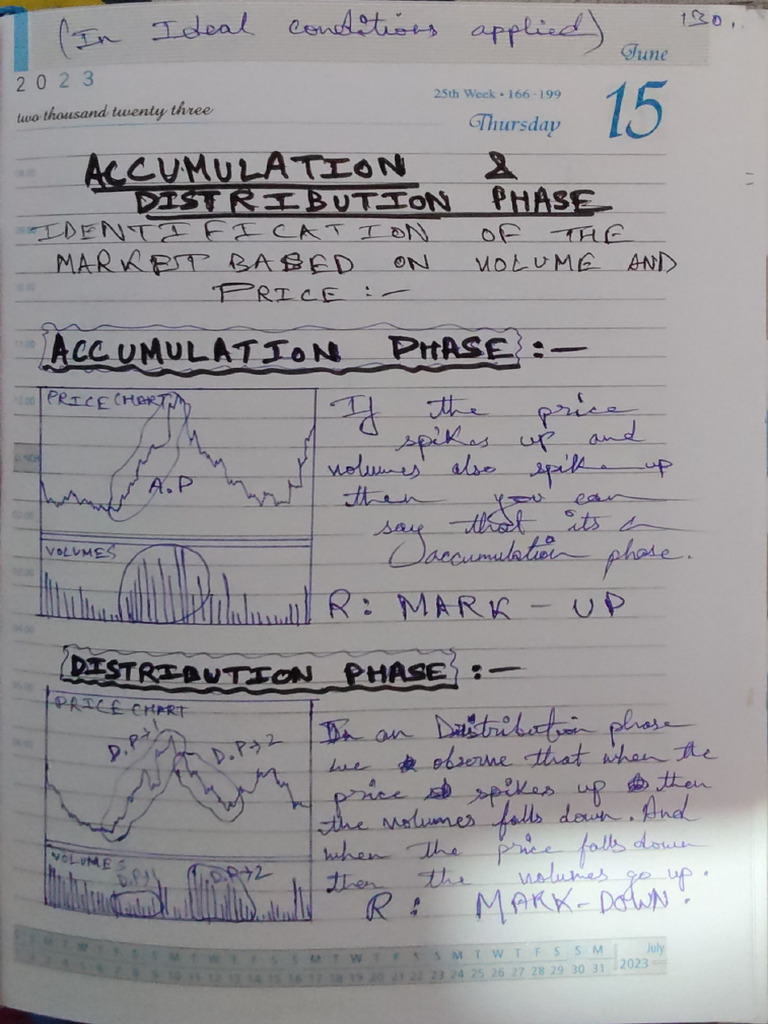 130.
(In Ideal conditions applied)
June
2023
25th Week • 166-199
15
two thousand twenty three
Thursday
ACCUMULATION &
DISTRIBUTION PHASE
IDENTIFICATION OF THE
MARKET BASED ON VOLUME AND
PRICE :-
ACCUMULATION PHASE :-
PRICE CHART
A.P
VOLUMES
If the price
spikes up and
volumes also spike up
then you can
say that its a
accumulation phase.
R: MARK-UP
DISTRIBUTION PHASE :-
PRICE CHART
D.P→1
D.P→2
VOLUMES
D.P→1
D.P→2
In an Distribution phase
we observe that when the
price spikes up then
the volumes falls down. And
when the price falls down
then the volumes go up.
R: MARK-DOWN.
S M T W T F S M T W T F S M July
17 18 19 20 21 22 23 24 25 26 27 28 29 30 31 2023